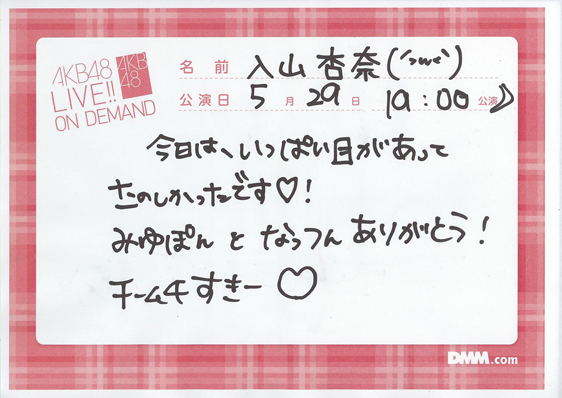 AKB48
LIVE!!
ON DEMAND
AKB
48
名前 入山杏奈('ω')
公演日 5月29日 19:00公演
今日は、いっぱい目があって
たのしかったです♡!
みゆぽんとなっつんありがとう!
チーム4すきー♡
DMM.com